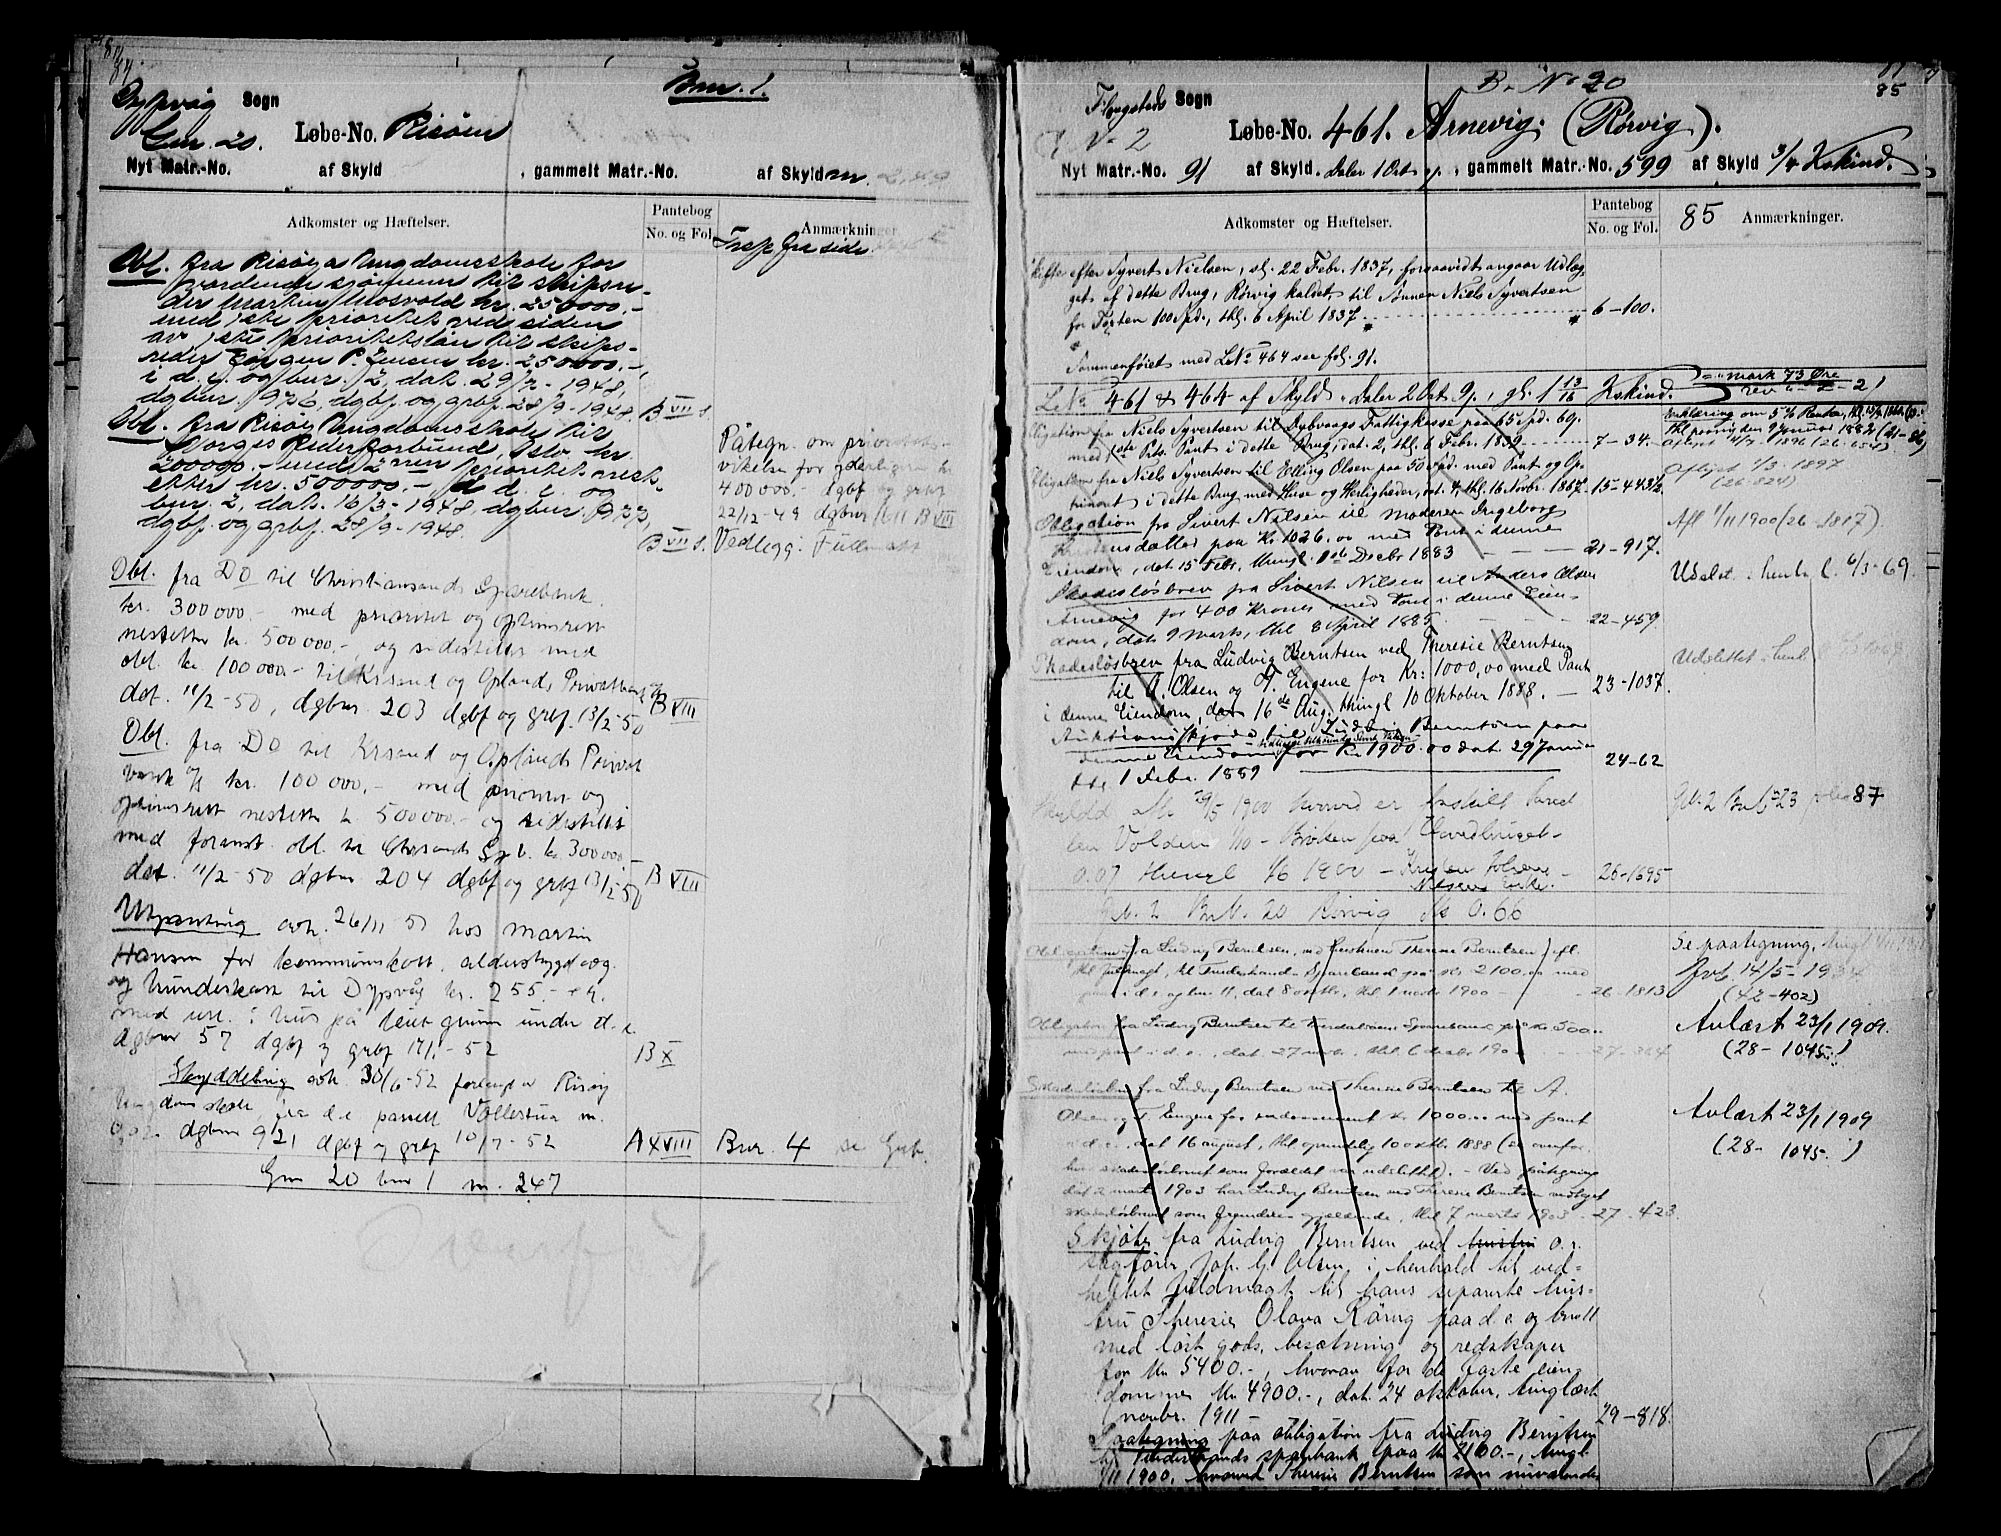 84
Bnr. 1.
Dypvåg Sogn
Gnr. 20. Løbe-No. Risøen
Nyt Matr.-No. af Skyld , gammelt Matr.-No. af Skyld m. 2,49
Adkomster og Hæftelser.
Pantebog
No. og Fol.
Anmærkninger
fra side
Obl. fra Risøya Ungdomsskole for
vordende sjømenn til skipsre-
der Marken Mosvold kr. 250000.-
med 1ste prioritet ved siden
av 1ste prioritetslån til skips-
reder Jørgen P. Jensen kr. 250000.-,
i d. e. og bnr. 2, dat. 29/7-1948,
dgbnr. 1976, dgbf. og grbf. 28/9-1948. B VII s.
Obl. fra Risøya Ungdomsskole til
Norges Rederforbund, Oslo kr.
200000.- med 2nen prioritet nest
etter kr. 500000.- i d. e. og
bnr. 2, dat. 16/3-1948, dgbnr. 1977,
dgbf. og grbf. 28/9-1948. B VII s.
Påtegn. om prioritets-
vikelse for yderligere kr
400000.- dgbf og grbf
22/12-49 dgbnr B VIII
Vedlegg: Fullmakt
Obl. fra Do til Christianssands Sparebank
kr. 300000.- med prioritet og opprinsrett
nestetter kr. 500000.-, og sidestillet med
obl. kr. 100000.- til Krsand og Oplands Privatbank A/S
dat. 11/2-50, dgbnr. 203 dgbf og grbf 13/2-50 B VIII
Obl. fra Do til Krsand og Oplands Privat
bank A/S kr. 100000.- med prioritet og
opprinsrett nestetter kr. 500000.- og sidestillet
med foranst. obl. til Chrsands Spb. kr. 300000.-
dat. 11/2-50 dgbnr 204 dgbf og grbf 13/2-50 B VIII
Utpanting avh. 26/11 51 hos Martin
Hansen for kommuneskatt, alderstrygdavg.
og hundeskatt til Dypvåg kr. 255.- + g.
med utl. i hus på leiet grunn under d. e.
dgbnr 57 dgbf og grbf 17/1-52 B X
Skylddeling avh 30/6-52 forlangt av Risøy
Ungdomsskole, fra d.e parsell Vollestua m.
0,02. dgbnr 921 dgbf og grbf 10/7-52 A XVIII Bnr. 4 se Grb.
Gnr 20 bnr 1 m. 2.47
B. No 20
85
Flangstads Sogn
G No 2 Løbe-No. 461. Arnevig. (Rørvig).
Nyt Matr.-No. 91 af Skyld . Daler 1 Ort , gammelt Matr.-No. 599 af Skyld 3/4 Kskind.
Adkomster og Hæftelser.
Pantebog
No. og Fol.
85 Anmærkninger.
Skifte efter Syvert Nielsen, sl. 22 Febr. 1837, forsaavidt angaar Udlæg-
get af dette Brug, Rørvig kaldet til Sønnen Niels Syvertsen
for Taxten 100 Spd., thl. 6 April 1837 6-100.
Sammenføiet med L.No 464 see fol. 91.
L.No 461 & 464 af Skyld - Daler 2 Ort 9p., gl. 1 13/16 Kskind. mark 73 Øre
Obligation fra Niels Syvertsen til Dybvaags Fattigkasse paa 65 Spd. 69.
med 1ste Prts. Pant i dette Brug, dat. 2, thl. 6 Febr. 1839 7-34.
Erklæring om 5% Renter,
Aflyst 1896 (26-654).
Obligation fra Niels Syvertsen til Elling Olsen paa 50 Spd. med Pant og Op-
rinsret i dette Brug med Huse og Herligheder, dat. 4, thl. 16 Novbr. 1867. 15-443½.
Aflyst 1/3 1897
(26-824)
Obligation fra Sivert Nilsen til Moderen Ingeborg
Knutsdatter paa Kr. 1026.00 med Pant i denne
Eiendom, dat 15 Febr, thingl. 8de Decbr 1883 21-917.
Afl 1/11 1900 (26-1817).
Skadesløsbrev fra Sivert Nilsen til Anders Olsen
Arnevig for 400 Kroner med Pant i denne Eien-
dom, dat 9 Marts, thl 8 April 1885. 22-459
Udslet. i henh. l. 6/3-69.
Skadesløsbrev fra Ludvig Berntsen ved Theresie Berntsen
til A. Olsen og T. Eugene for Kr: 1000,00 med Pant
i denne Eiendom, dat 16de Aug. thingl 10 Oktober 1888. 23-1037.
Udslettet i henh
Auktionsskjøde til Ludvig Berntsen paa
denne Eiendom for Kr 1900.00 dat. 29 Januar
thl 1 Febr. 1889 24-62
Skylddl. 29/5 1900 hvorved er fraskilt Parcel-
len Volden, No
0.07 thingl 1/6 1900 26-1695
Gb. 2 Br. No 23 folio 87
G.No. 2 Br.No. 20 Rørvig Mk 0.66
Obligation fra Ludvig Berntsen, ved hustruen Therese Berntsen efl.
thl. fuldmagt, til Tvedestrands Sparebank paa kr 2100,00 med
pant i d. e. og bnr. 11, dat 8 oktbr, thl 1 novbr 1900 26-1813
Se paategning, tingl 1/11 1911
Avl. 14/5-1934
(42-402)
Obligation fra Ludvig Berntsen til Tvedestrands Sparebank paa kr. 500..
med pant i d. e., dat. 27 novbr., thl. 6 decbr 190 27-304
Avlæst 23/1 1909.
(28-1045.)
Skadesløsbrev fra Ludvig Berntsen ved Therese Berntsen til A.
Olsen og T. Eugene for endossement kr. 1000.00 med pant
i d. e., dat 16 august, thl oprindelig 10 oktbr. 1888 (se ovenfor,
hvor skadesløsbrevet som forældet var udslettet). - Ved paategning
dat 2 marts 1903 har Ludvig Berntsen ved Therese Berntsen vedtaget
skadesløsbrevet som fremdeles gjeldende, thl 7 marts 1903. 27-423
Avlæst 23/1 1909
(28-1045.)
Skjøte fra Ludvig Berntsen ved hustru o. r.
sagfører Joh. G. Olsen, i henhold til ved-
heftet fuldmagt, til hans separerte hus-
tru Theresie Olava Rörvig paa d. e. og bnr 11
med løst gods, besætning og redskaper
for kr 5400.-, hvorav for de faste eien-
dommer kr 4900.-, dat. 24 oktober, tinglæst
novbr. 1911 29-818.
Paategning paa obligation fra Ludvig Berntsen
til Tvedestrands sparebank paa kr 2100.-, tingl.
1/11 1900, hvorved Theresie Berntsen som nuværende